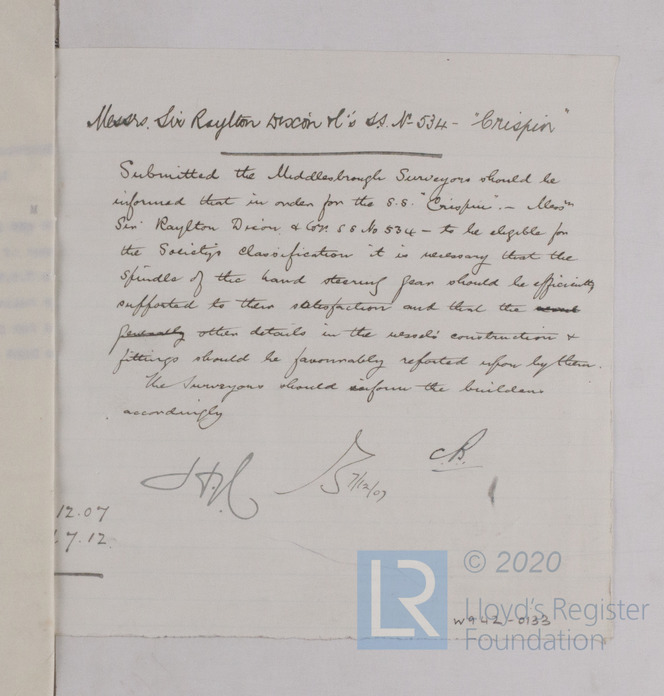 Messrs. Sir Raylton Dixon & Co's S.S. No 534 - "Crispin"
Submitted the Middlesbrough Surveyors should be
informed that in order for the S.S. "Crispin". - Messrs
Sir Raylton Dixon & Co's. S S No 534 - to be eligible for
the Society's classification it is necessary that the
spindle of the hand steering gear should be efficiently
supported to their satisfaction and that the
generally other details in the vessel's construction &
fittings should be favourably reported upon by them.
The Surveyors should inform the builders
accordingly
7/12/07
C.B.
12.07
7.12.
© 2020
LR
Lloyd's Register
Foundation
W942-0133